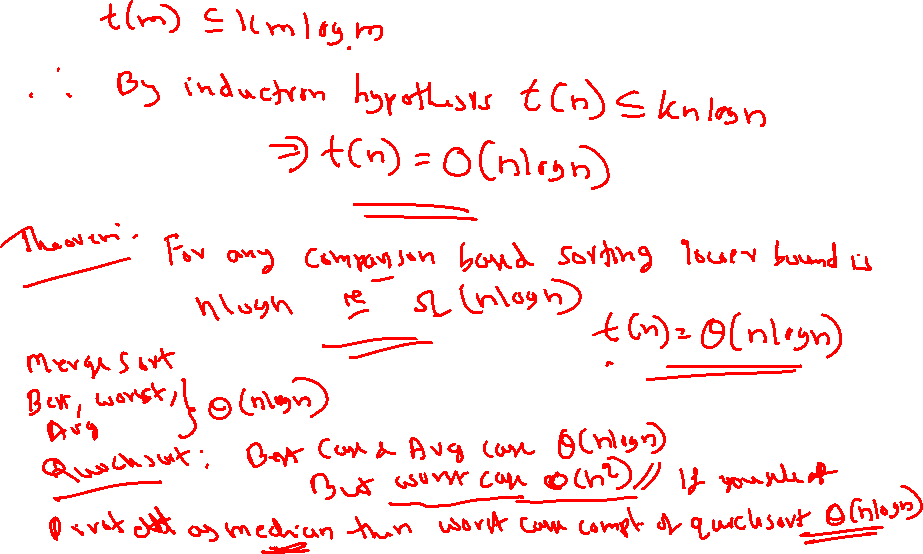 t(m) ≤ k m log m
∴ By induction hypothesis t(n) ≤ kn log n
⇒ t(n) = O(n log n)
Theorem: For any comparison based sorting lower bound is
n log n ie Ω(n log n)
t(n) = Θ(n log n)
Merge Sort
Best, worst, Avg } Θ(n log n)
Quicksort: Best Case & Avg case Θ(n log n)
But worst case Θ(n²) // If you select
pivot as median then worst case compl of quicksort Θ(n log n)